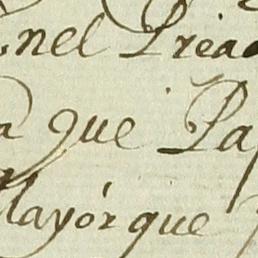 nel Priea
a que Pa
Mayór que